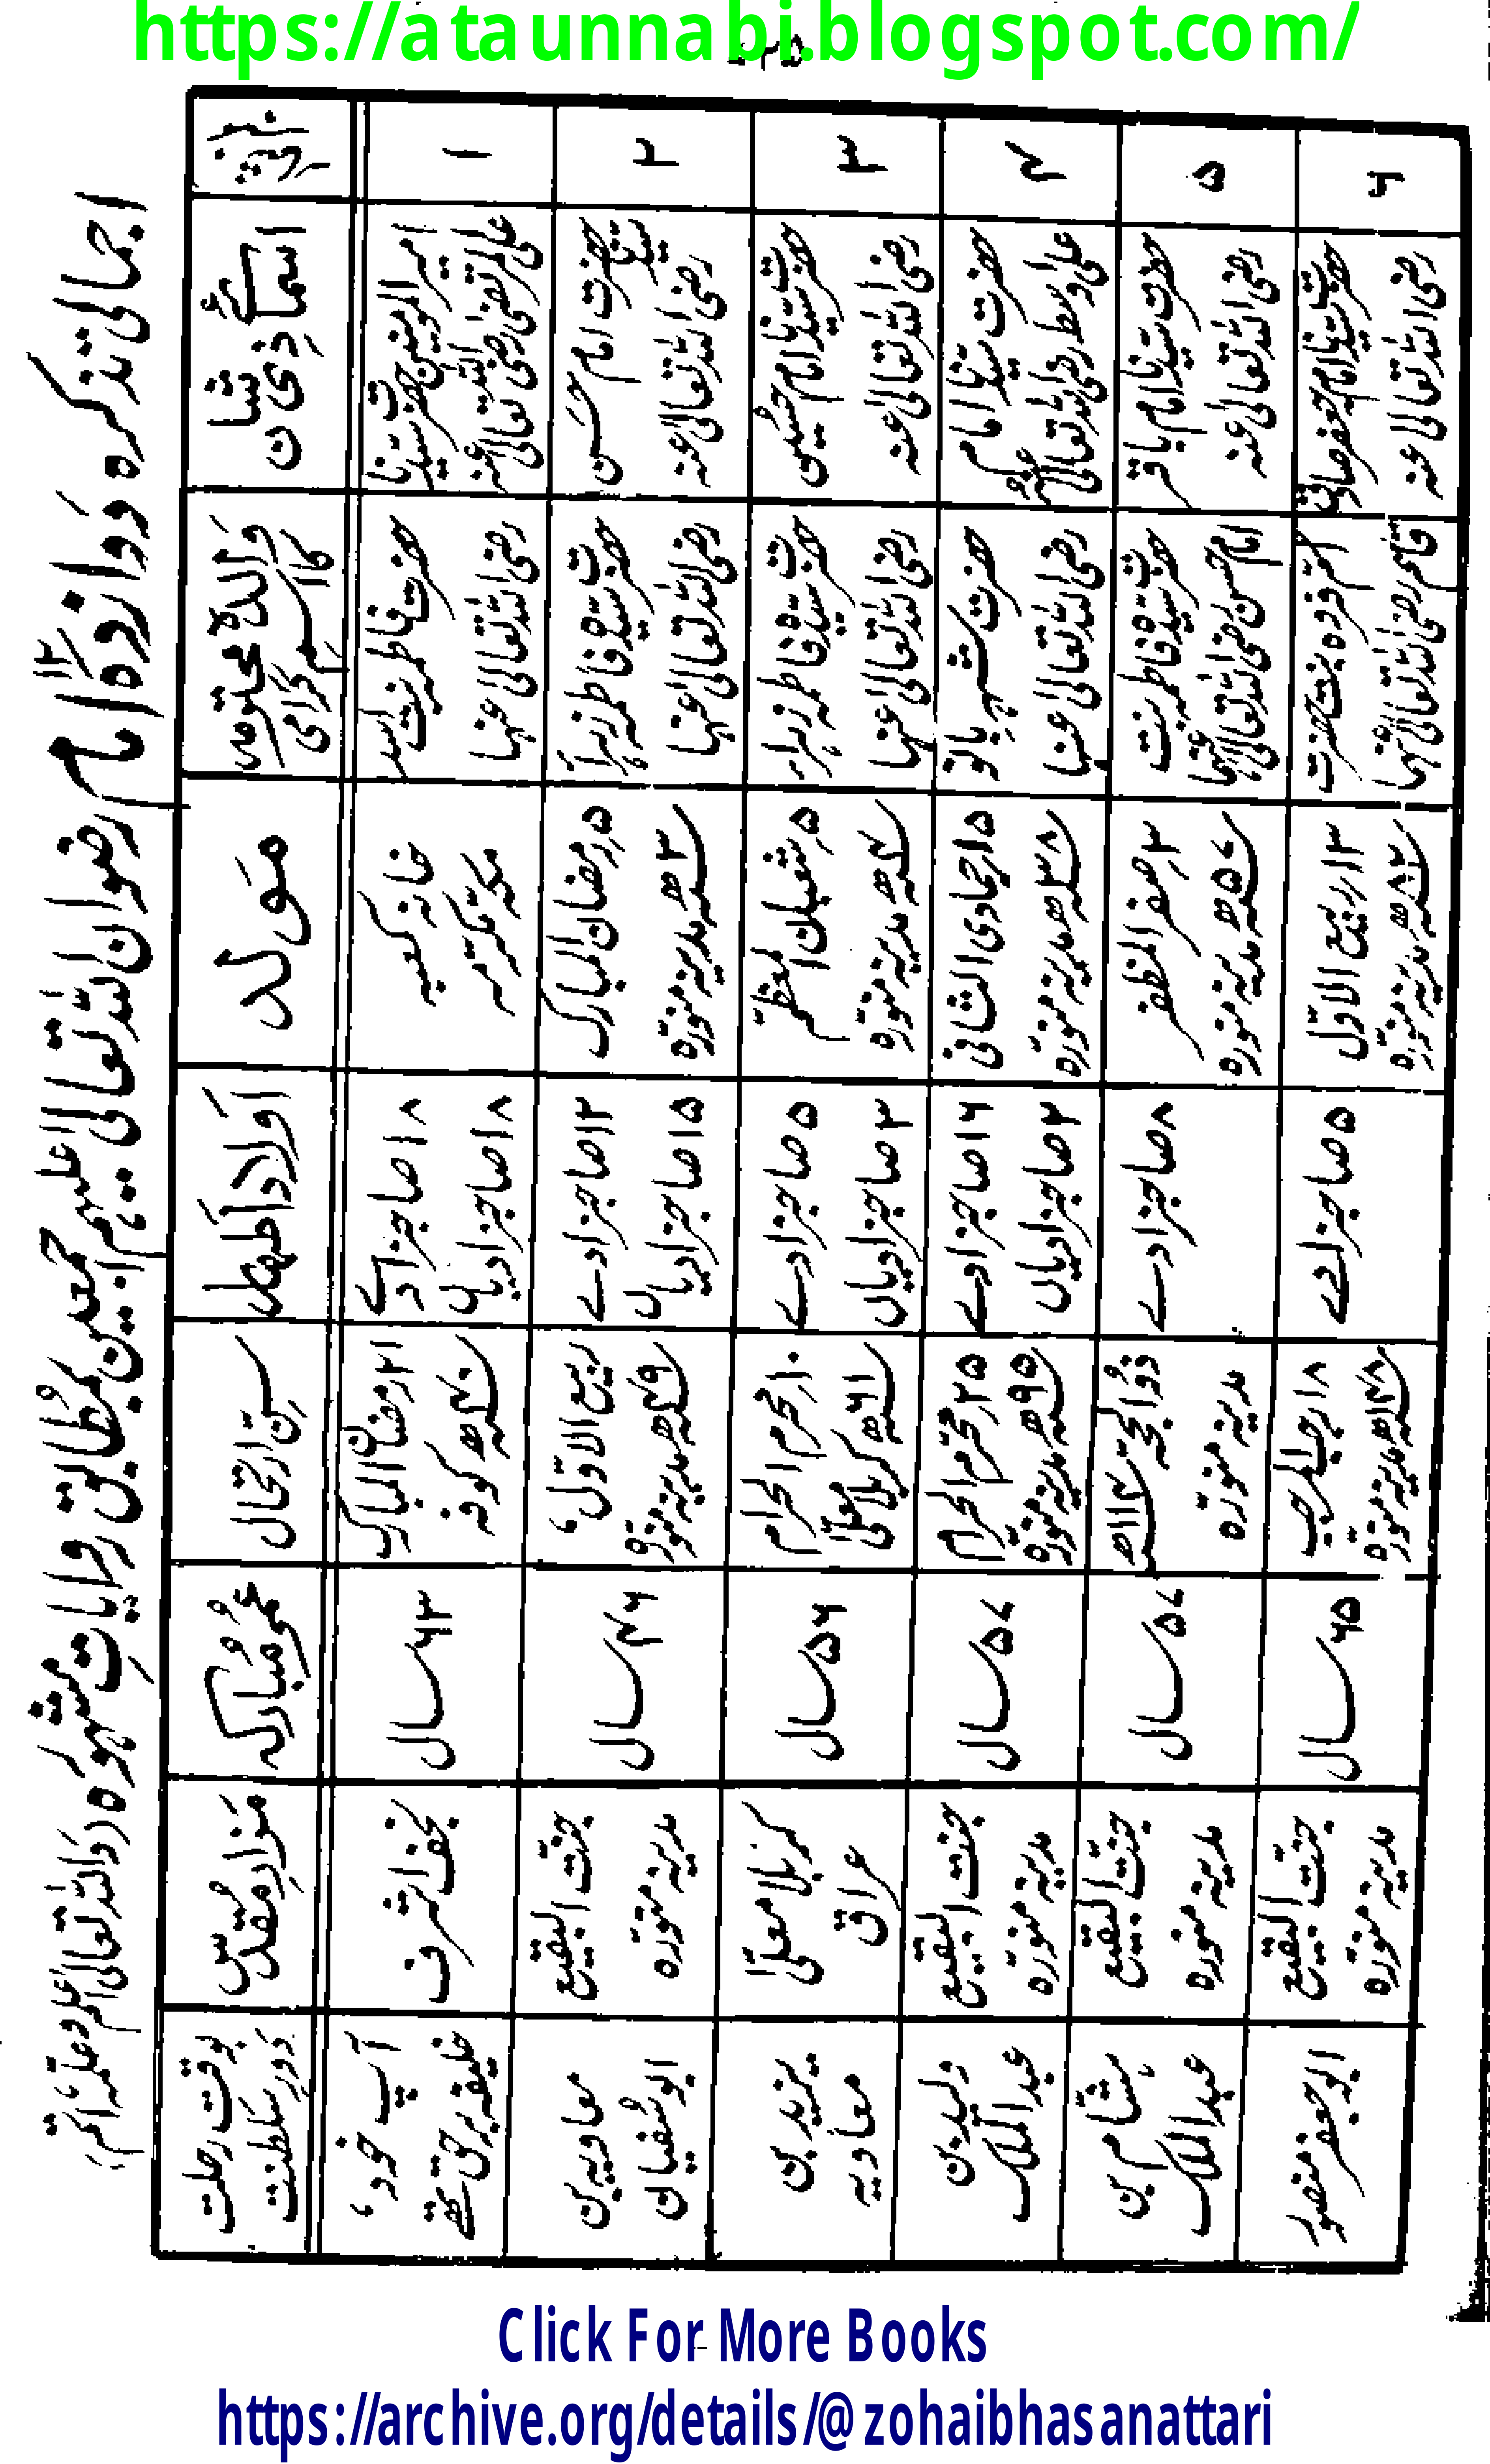 https://ataunnabi.blogspot.com/
اجمالی تذکرہ دوازدہ امام رضوان اللہ تعالیٰ علیہم اجمعین بمطابق روایاتِ مشہورہ (واللہ تعالیٰ اعلم وعلمہ اتم)
نمبر شمار
اسمائے ذی شان
والدہ محترمہ کا اسم گرامی
مولد
اولاد اطہار
سنِ ارتحال
عمر مبارکہ
مزارِ مقدس
بوقت رحلت دورِ سلطنت
۱
امیر المومنین حضرت سیدنا علی المرتضیٰ رضی اللہ تعالیٰ عنہ
حضرت فاطمہ بنت اسد رضی اللہ تعالیٰ عنہا
خانہ کعبہ مکہ مکرمہ
۱۸ صاحبزادے ۱۸ صاحبزادیاں
۲۱ رمضان المبارک ۴۰ھ کوفہ
۶۳ سال
نجف اشرف
آپ خود، خلیفہ برحق تھے
۲
حضرت سیدنا امام حسن رضی اللہ تعالیٰ عنہ
حضرت سیدہ فاطمہ زہرا رضی اللہ تعالیٰ عنہا
۵ رمضان المبارک ۳ھ مدینہ منورہ
۱۲ صاحبزادے ۱۵ صاحبزادیاں
ربیع الاول، ۴۹ھ مدینہ منورہ
۴۶ سال
جنت البقیع مدینہ منورہ
معاویہ بن ابوسفیان
۳
حضرت سیدنا امام حسین رضی اللہ تعالیٰ عنہ
حضرت سیدہ فاطمہ زہرا رضی اللہ تعالیٰ عنہا
۵ شعبان المعظم ۴ھ مدینہ منورہ
۵ صاحبزادے ۳ صاحبزادیاں
۱۰ محرم الحرام ۶۱ھ کربلائے معلیٰ
۵۶ سال
کربلا معلیٰ عراق
یزید بن معاویہ
۴
حضرت سیدنا امام علی اوسط رضی اللہ تعالیٰ عنہ
حضرت شہر بانو رضی اللہ تعالیٰ عنہا
۱۵ جمادی الثانی ۳۸ھ مدینہ منورہ
۱۶ صاحبزادے ۲ صاحبزادیاں
۲۵ محرم الحرام ۹۵ھ مدینہ منورہ
۵۷ سال
جنت البقیع مدینہ منورہ
ولید بن عبدالملک
۵
حضرت سیدنا امام باقر رضی اللہ تعالیٰ عنہ
حضرت سیدہ فاطمہ بنت امام حسن رضی اللہ تعالیٰ عنہما
۳ صفر المظفر ۵۷ھ مدینہ منورہ
۸ صاحبزادے
ذوالحجہ ۱۱۴ھ مدینہ منورہ
۵۷ سال
جنت البقیع مدینہ منورہ
ہشام بن عبدالملک
۶
حضرت سیدنا امام جعفر صادق رضی اللہ تعالیٰ عنہ
ام فروہ بنت حضرت قاسم رضی اللہ تعالیٰ عنہما
۱۳ ربیع الاول ۸۳ھ مدینہ منورہ
۵ صاحبزادے
۱۸ رجب المرجب ۱۴۸ھ مدینہ منورہ
۶۵ سال
جنت البقیع مدینہ منورہ
ابو جعفر منصور
Click For More Books
https://archive.org/details/@zohaibhasanattari